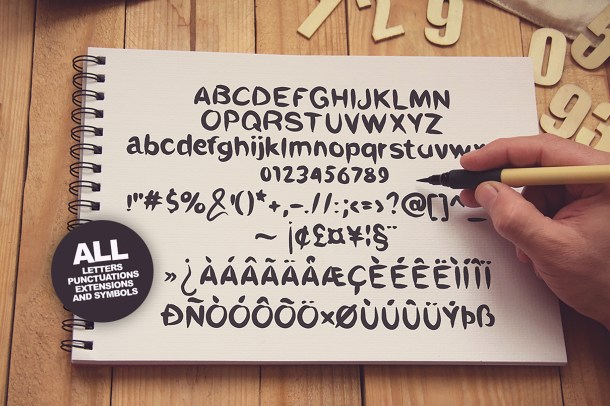 7 2 9
0
93
ABCDEFGHIJKLMN
OPQRSTUVWXYZ
abcdefghijklmnopqrstuvwx
0123456789
!"#$%&'()*+,-.//:;<=>?@[]^_
~¡¢£¤¥¦§¨
»¿ÀÁÂÃÄÅÆÇÈÉÊËÌÍÎÏ
ÐÑÒÓÔÕÖ×ØÙÚÛÜÝÞß
ALL
LETTERS
PUNCTUATIONS
EXTENSIONS
AND SYMBOLS